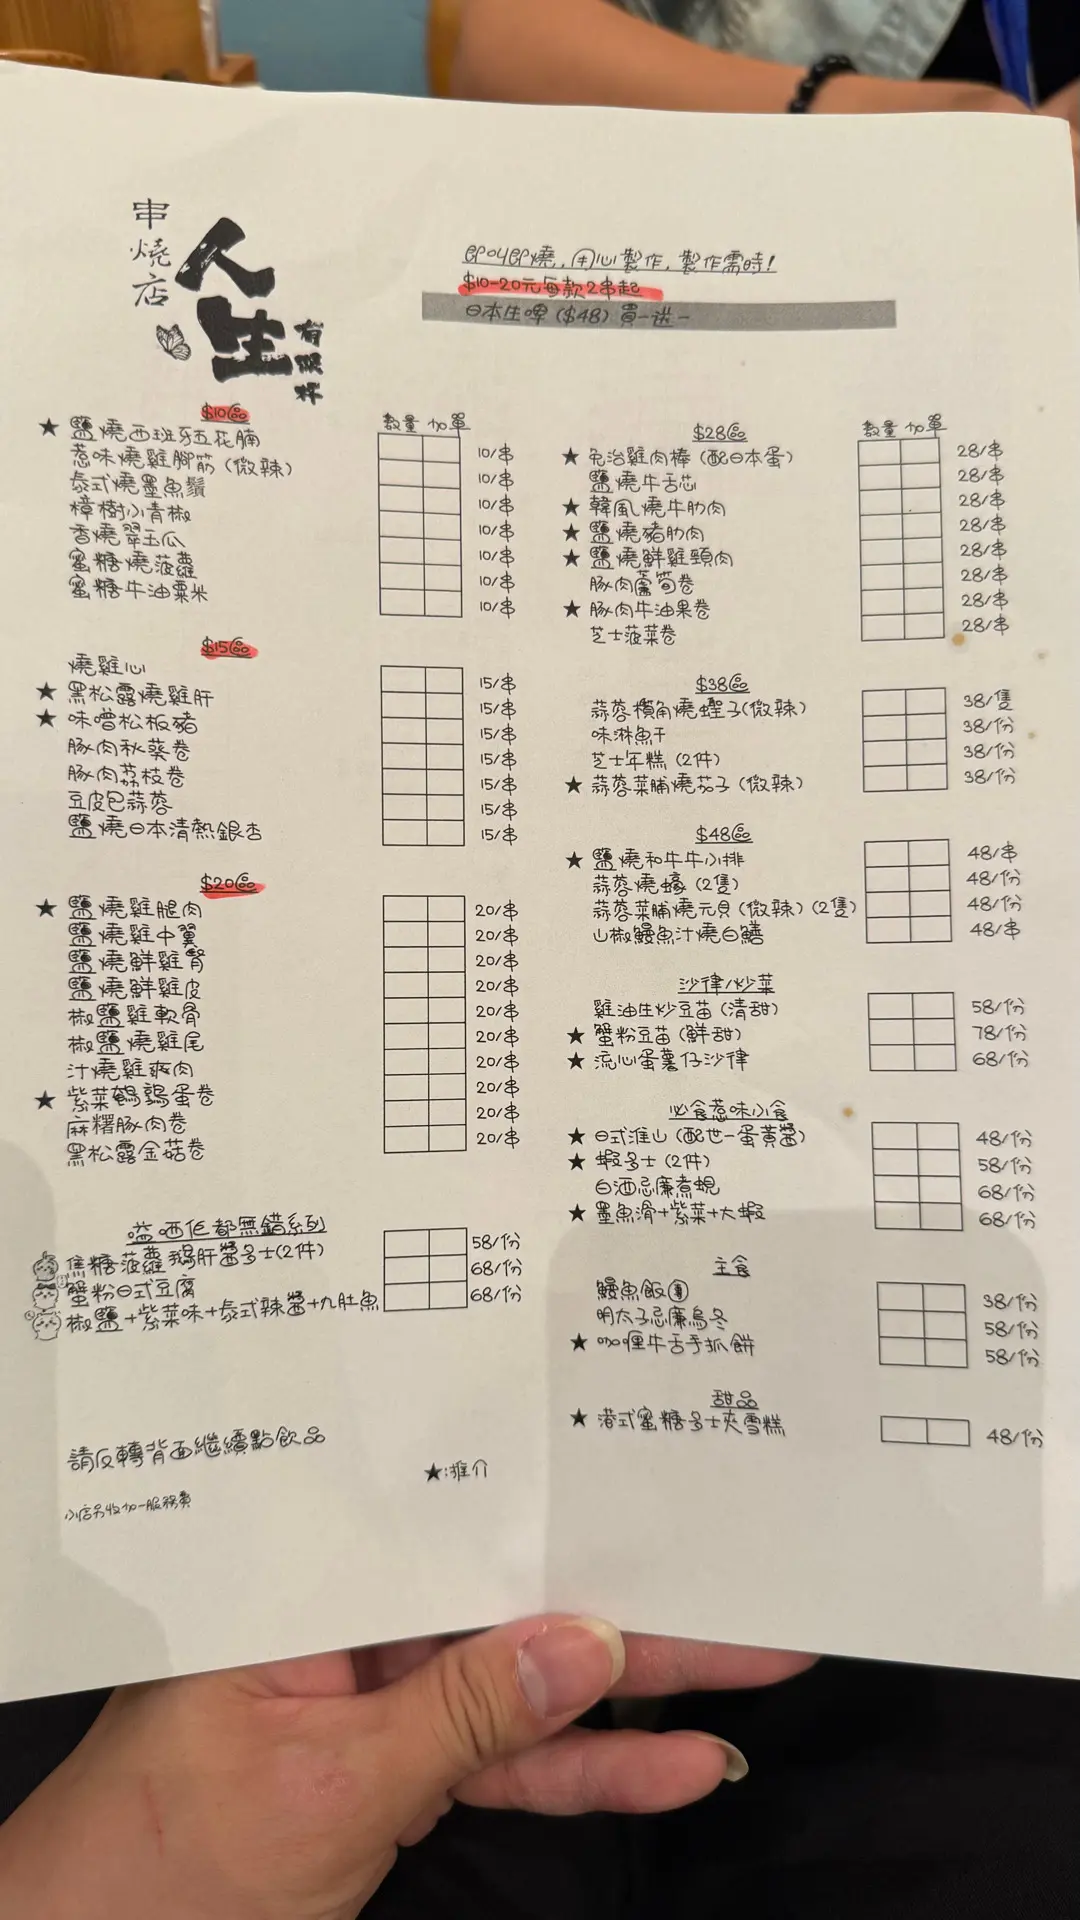 串燒店
人生
有限杯
即叫即燒,用心製作,製作需時!
$10-20元每款2串起
日本生啤($48)買一送一
$10區
數量 加單
★ 鹽燒西班牙五花腩 10/串
惹味燒雞腳筋(微辣) 10/串
泰式燒墨魚鬚 10/串
樟樹小青椒 10/串
香燒翠玉瓜 10/串
蜜糖燒菠蘿 10/串
蜜糖牛油粟米 10/串
$15區
燒雞心 15/串
★ 黑松露燒雞肝 15/串
★ 味噌松板豬 15/串
豚肉秋葵卷 15/串
豚肉荔枝卷 15/串
豆皮包蒜蓉 15/串
鹽燒日本清熱銀杏 15/串
$20區
★ 鹽燒雞腿肉 20/串
鹽燒雞中翼 20/串
鹽燒鮮雞腎 20/串
鹽燒鮮雞皮 20/串
椒鹽雞軟骨 20/串
椒鹽燒雞尾 20/串
汁燒雞爽肉 20/串
★ 紫菜鵪鶉蛋卷 20/串
麻糬豚肉卷 20/串
黑松露金菇卷 20/串
嗌哂佢都無錯系列
焦糖菠蘿鵝肝醬多士(2件) 58/份
蟹粉日式豆腐 68/份
椒鹽+紫菜味+泰式辣醬+九肚魚 68/份
請反轉背面繼續點飲品
★:推介
小店另收加一服務費
$28區
數量 加單
★ 免治雞肉棒(配日本蛋) 28/串
鹽燒牛舌芯 28/串
★ 韓風燒牛肋肉 28/串
★ 鹽燒豬肋肉 28/串
★ 鹽燒鮮雞頸肉 28/串
豚肉蘆筍卷 28/串
★ 豚肉牛油果卷 28/串
芝士菠菜卷 28/串
$38區
蒜蓉欖角燒蟶子(微辣) 38/隻
味淋魚干 38/份
芝士年糕(2件) 38/份
★ 蒜蓉菜脯燒茄子(微辣) 38/份
$48區
★ 鹽燒和牛牛小排 48/串
蒜蓉燒蠔(2隻) 48/份
蒜蓉菜脯燒元貝(微辣)(2隻) 48/份
山椒鰻魚汁燒白鱔 48/串
沙律/炒菜
雞油生炒豆苗(清甜) 58/份
★ 蟹粉豆苗(鮮甜) 78/份
★ 流心蛋薯仔沙律 68/份
必食惹味小食
★ 日式淮山(配世一蛋黃醬) 48/份
★ 蝦多士(2件) 58/份
白酒忌廉煮蜆 68/份
★ 墨魚滑+紫菜+大蝦 68/份
主食
鰻魚飯 38/份
明太子忌廉烏冬 58/份
★ 咖喱牛舌手抓餅 58/份
甜品
★ 港式蜜糖多士夾雪糕 48/份